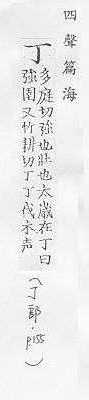 四聲篇海
丁
多庭切強也壯也太歲在丁曰
強圉又竹耕切丁丁伐木声
（丁部．p.155）